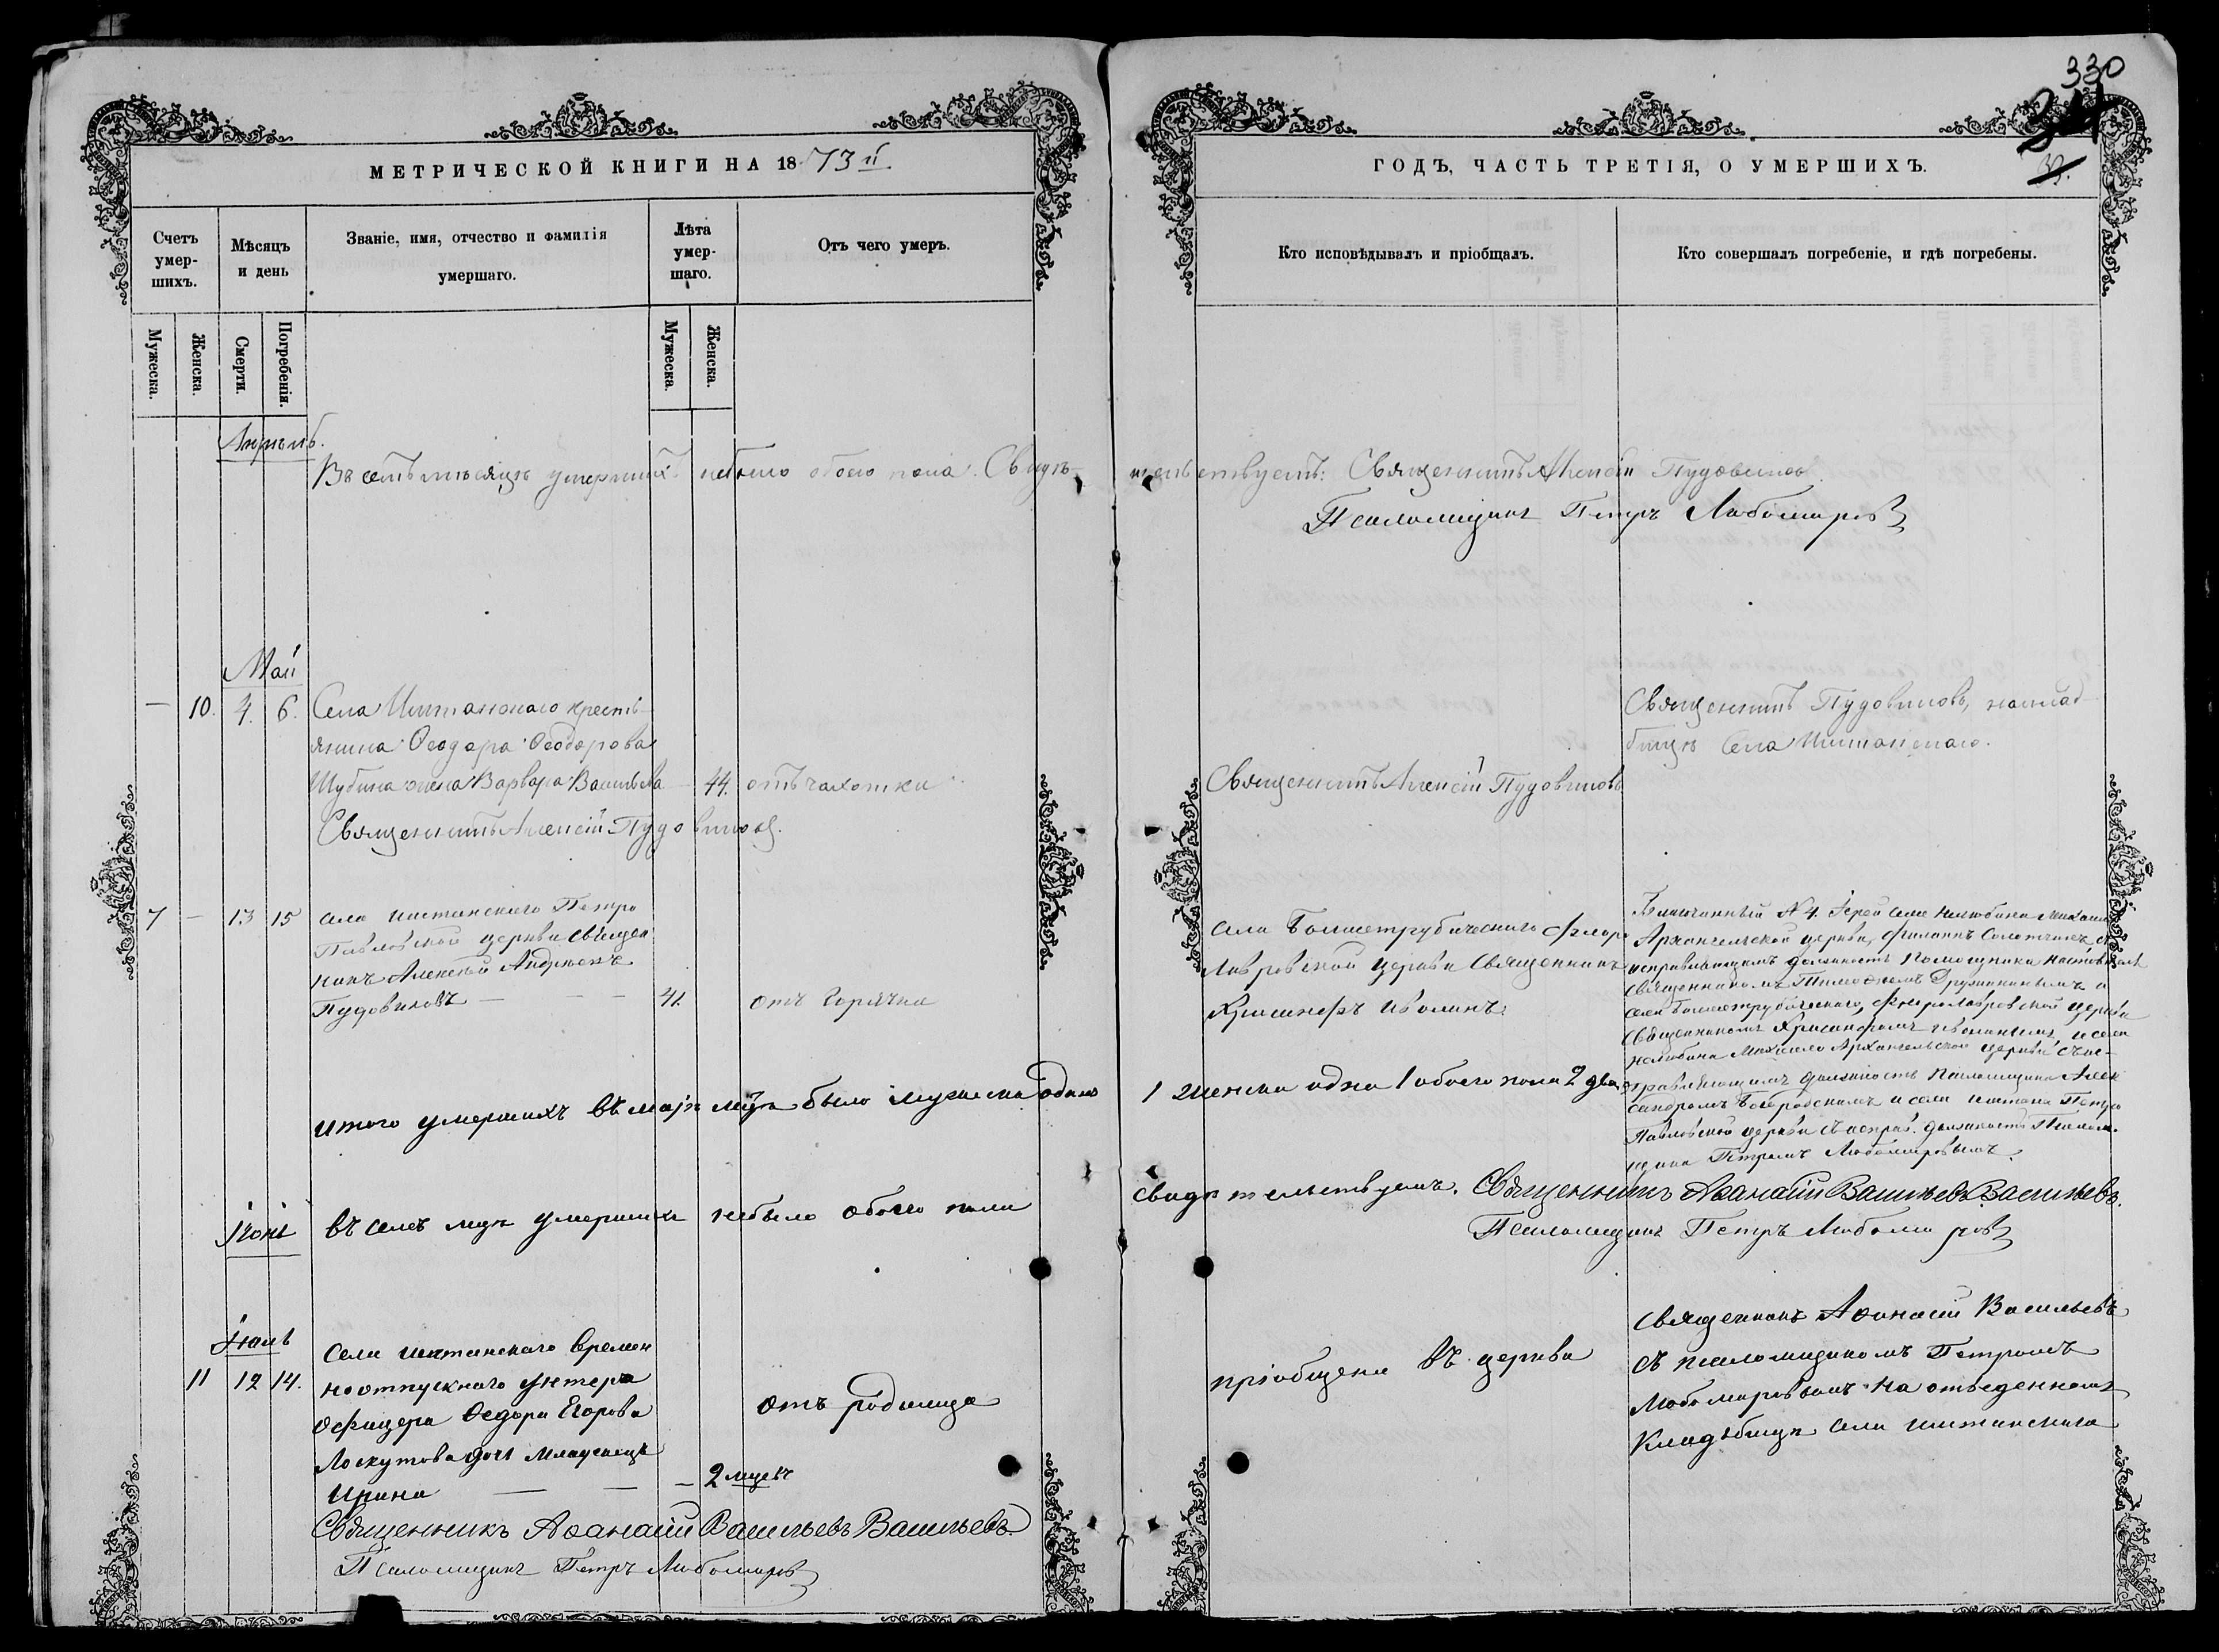 330
39.
МЕТРИЧЕСКОЙ КНИГИ НА 1873й
ГОДЪ, ЧАСТЬ ТРЕТІЯ, О УМЕРШИХЪ.
Счетъ умер-шихъ.
Мѣсяцъ и день
Званіе, имя, отчество и фамилія умершаго.
Лѣта умер-шаго.
Отъ чего умеръ.
Кто исповѣдывалъ и пріобщалъ.
Кто совершалъ погребеніе, и гдѣ погребены.
Мужеска.
Женска.
Смерти.
Погребенія.
Мужеска.
Женска.
Апрѣль.
Въ семъ мѣсяцѣ умершихъ небыло обоего пола. Свидѣ-
тельствуетъ: Священникъ Алексій Пудовиковъ.
Псаломщикъ Петръ Любомировъ
Май
— 10. 4. 6. Села Иштанскаго кресть-
янина Ѳеодора Ѳеодорова
Шубина жена Варвара Васильева — 44. отъ чахотки
Священникъ Алексій Пудовиковъ.
Священникъ Алексій Пудовиковъ
Священникъ Пудовиковъ, на клад-
бищѣ села Иштанскаго.
7 — 13 15 села иштанскаго Петро
Павловской церкви Священ
никъ Алексѣй Андреевъ
Пудовиковъ — — — 41. отъ горячки
села Большетрубическаго Флоро
Лавровской церкви Священникъ
Хрисанфъ Иволинъ.
Благочинный № 4. Іерей села Нелюбина Михаило
Архангельской церкви, Филиппъ съ
исправляющимъ должность Помощника настоятеля
священникомъ Тимофеемъ Дружининымъ и
села Большетрубическаго, Флоролавровской церкви
священникомъ Хрисанфомъ Иволинымъ, и села
Нелюбина Михаило Архангельской церкви съ ис-
правляющимъ должность Псаломщика Алек
сандромъ Бобровскимъ и села иштана Петро
Павловской церкви съ исправ. должность Псалом-
щика Петромъ Любомировымъ.
итого умершихъ въ маѣ мцѣ было мужеска одинъ
1 женска одна 1 обоего пола 2 два
іюнь
въ семъ мцѣ умершихъ небыло обоего пола
свидѣтельствуемъ. Священникъ Аѳанасій Васильевъ Васильевъ.
Псаломщикъ Петръ Любомировъ
Іюль
11 12 14. села иштанскаго времен
ноотпускнаго унтеръ
офицера Ѳедора Егорова
Лоскутова дочь младенецъ
Ирина — — — 2 мцевъ
отъ родимца
пріобщена въ церкви
священникъ Аѳанасій Васильевъ
съ псаломщикомъ Петромъ
Любомировымъ на отведенномъ
Кладбищѣ села иштанскаго
Священникъ Аѳанасій Васильевъ Васильевъ.
Псаломщикъ Петръ Любомировъ